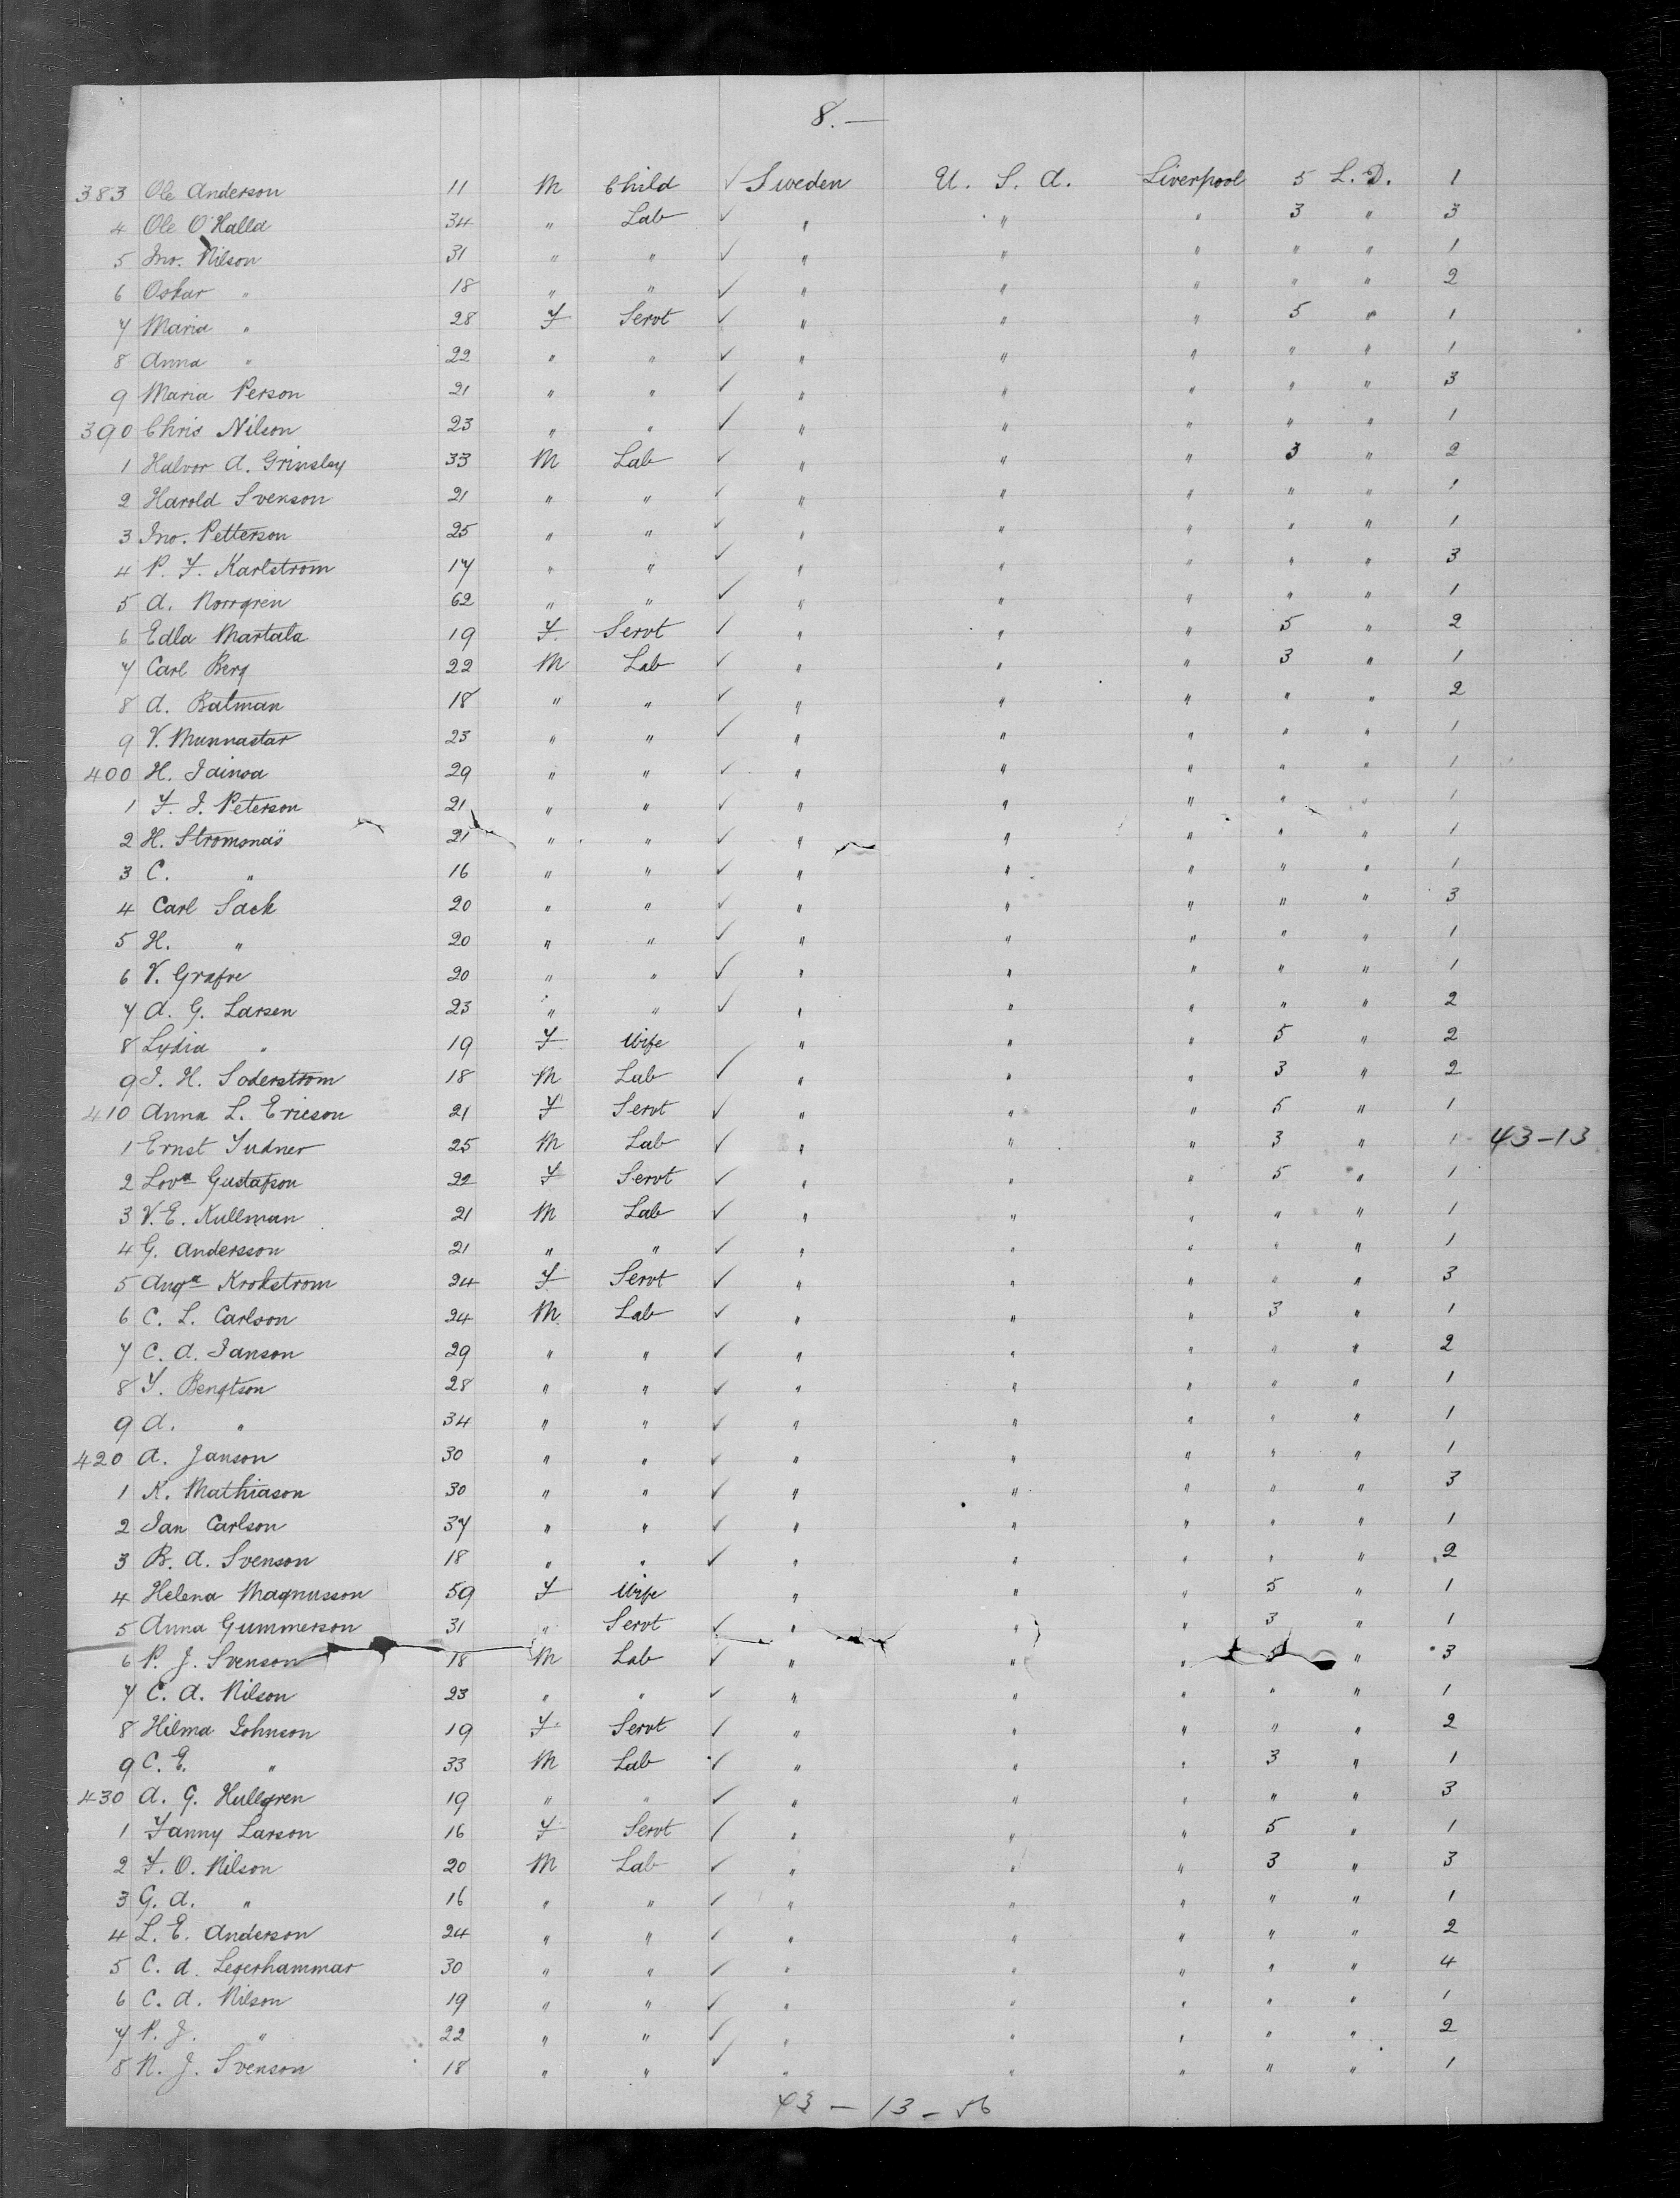 8.—
383 Ole Anderson 11 M Child ✓ Sweden U. S. A. Liverpool 5 L. D. 1
4 Ole O'Halla 34 " Lab ✓ " " " 3 " 3
5 Jno. Nilson 31 " " ✓ " " " " " 1
6 Oskar " 18 " " ✓ " " " " " 2
7 Maria " 28 F Servt ✓ " " " 5 " 1
8 Anna " 22 " " ✓ " " " " " 1
9 Maria Person 21 " " ✓ " " " " " 3
390 Chris Nilson 23 " " ✓ " " " " " 1
1 Halvor A. Grinsley 33 M Lab ✓ " " " 3 " 2
2 Harold Svenson 21 " " ✓ " " " " " 1
3 Jno. Petterson 25 " " ✓ " " " " " 1
4 P. F. Karlstrom 17 " " ✓ " " " " " 3
5 A. Norrgren 62 " " ✓ " " " " " 1
6 Edla Martala 19 F. Servt ✓ " " " 5 " 2
7 Carl Berg 22 M Lab ✓ " " " 3 " 1
8 A. Batman 18 " " ✓ " " " " " 2
9 V. Munnastar 23 " " ✓ " " " " " 1
400 H. Jainoa 29 " " ✓ " " " " " 1
1 F. J. Peterson 21 " " ✓ " " " " " 1
2 H. Stromsnäs 21 " " ✓ " " " " " 1
3 C. " 16 " " ✓ " " " " " 1
4 Carl Sack 20 " " ✓ " " " " " 3
5 H. " 20 " " ✓ " " " " " 1
6 V. Grafve 20 " " ✓ " " " " " 1
7 A. G. Larsen 23 " " ✓ " " " " " 2
8 Lydia " 19 F Wife " " " 5 " 2
9 J. H. Soderstrom 18 M Lab ✓ " " " 3 " 2
410 Anna L. Ericson 21 F Servt ✓ " " " 5 " 1
1 Ernst Judner 25 M Lab ✓ " " " 3 " 1 43-13
2 Lova Gustafson 22 F Servt ✓ " " " 5 " 1
3 V. E. Kullman 21 M Lab ✓ " " " " " 1
4 G. Andersson 21 " " ✓ " " " " " 1
5 Auga Krokstrom 24 F Servt ✓ " " " " " 3
6 C. L. Carlson 24 M Lab ✓ " " " 3 " 1
7 C. A. Janson 29 " " ✓ " " " " " 2
8 F. Bengtson 28 " " ✓ " " " " " 1
9 A. " 34 " " ✓ " " " " " 1
420 A. Janson 30 " " ✓ " " " " " 1
1 K. Mathiason 30 " " ✓ " " " " " 3
2 Jan Carlson 37 " " ✓ " " " " " 1
3 B. A. Svenson 18 " " ✓ " " " " " 2
4 Helena Magnusson 59 F Wife " " " 5 " 1
5 Anna Gummerson 31 " Servt ✓ " " " 3 " 1
6 P. J. Svenson 18 M Lab ✓ " " " " 3
7 C. A. Nilson 23 " " ✓ " " " " " 1
8 Hilma Johnson 19 F Servt ✓ " " " " " 2
9 C. E. " 33 M Lab ✓ " " " 3 " 1
430 A. G. Hullgren 19 " " ✓ " " " " " 3
1 Fanny Larson 16 F Servt ✓ " " " 5 " 1
2 F. O. Nilson 20 M Lab ✓ " " " 3 " 3
3 G. A. " 16 " " ✓ " " " " " 1
4 L. E. Anderson 24 " " ✓ " " " " " 2
5 C. A. Legerhammar 30 " " ✓ " " " " " 4
6 C. A. Nilson 19 " " ✓ " " " " " 1
7 P. J. " 22 " " ✓ " " " " " 2
8 N. J. Svenson 18 " " ✓ " " " " " 1
43 – 13 – 56